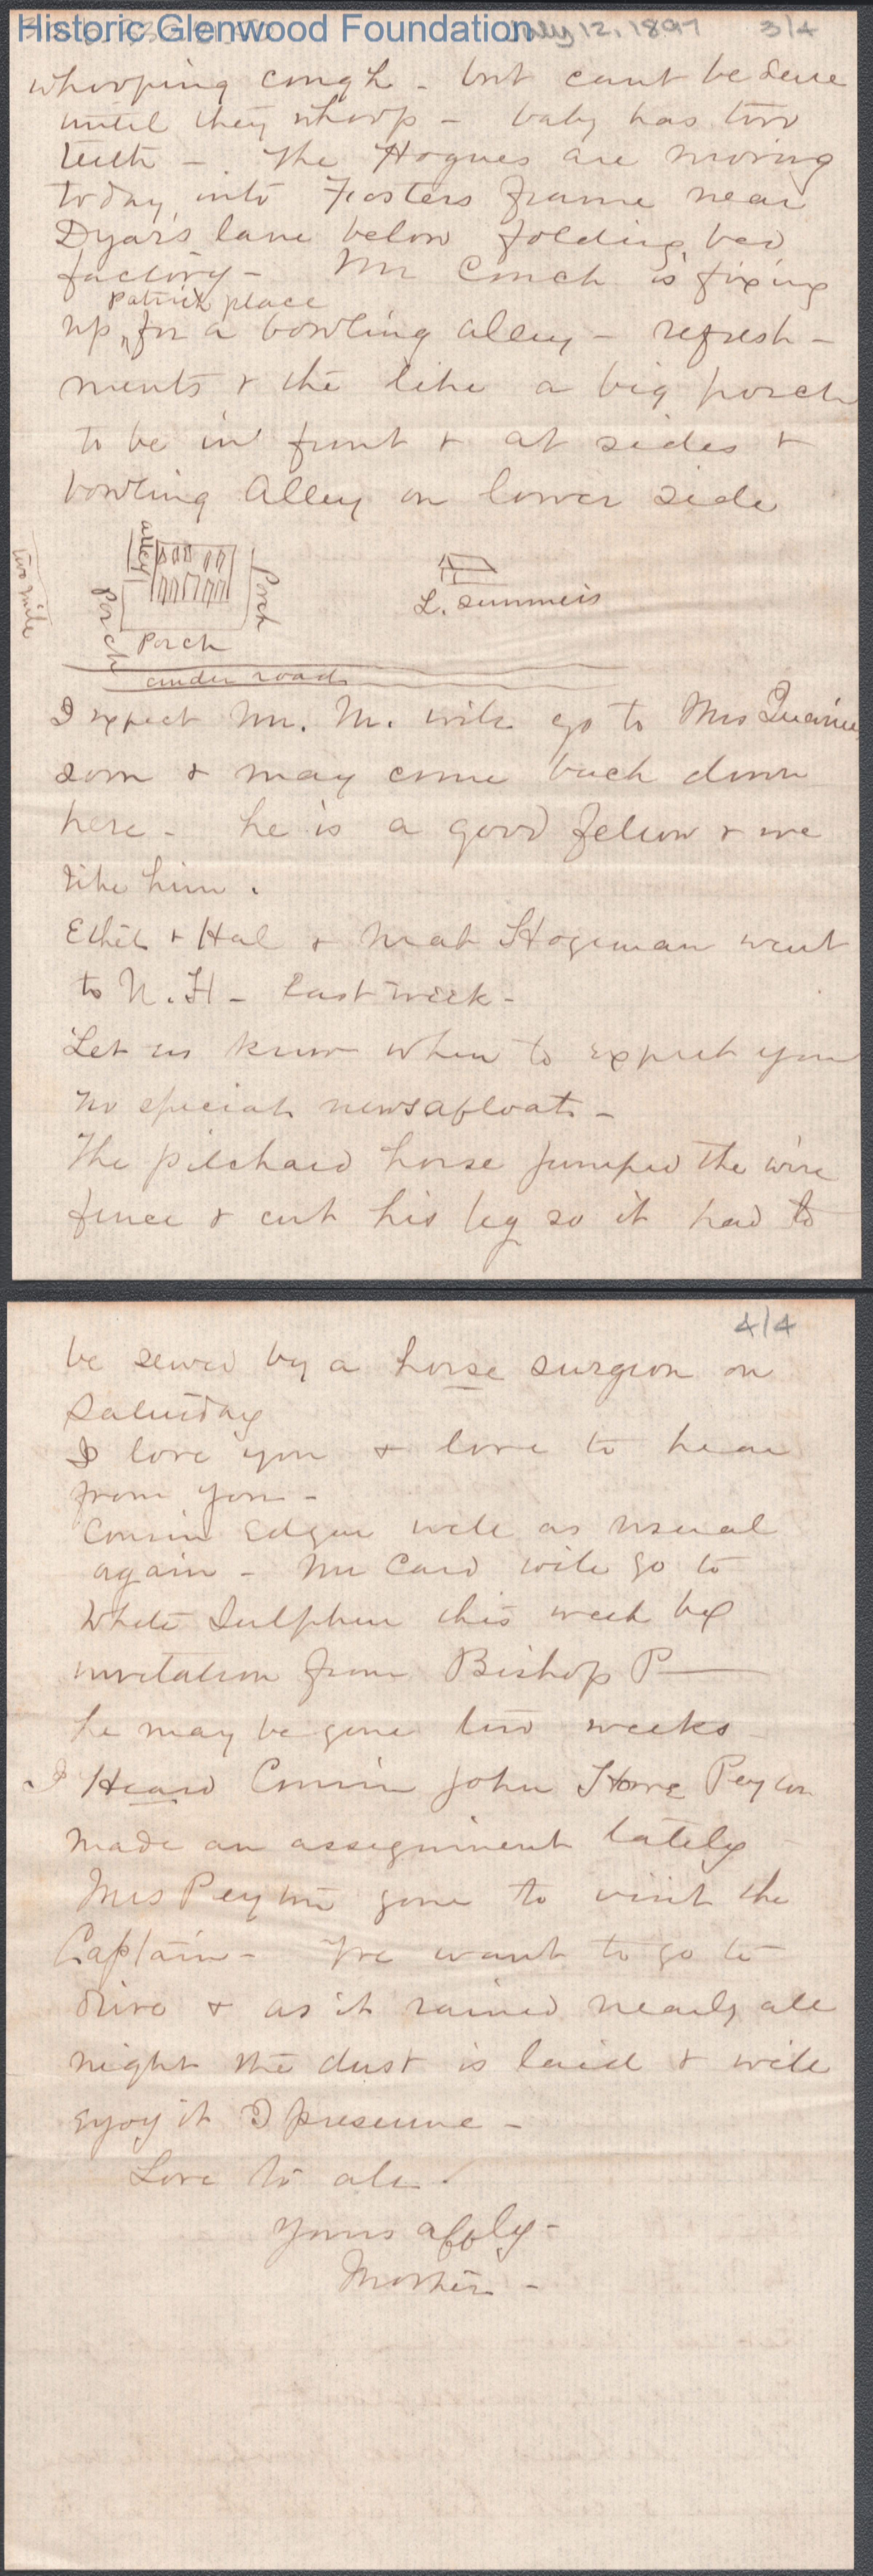 Historic Glenwood Foundation
July 12, 1897 3/4
whooping cough - but cant be sure
until they whoop - baby has two
teeth - The Hogues are moving
today into Fosters frame near
Dyars lane below folding bed
factory - Mr Couch is fixing
Patrick place
up for a bowling alley - refresh -
ments & the like a big porch
to be in front & at sides &
bowling Alley on lower side
two mile
alley
Porch
Porch
Porch
L. Summers
cinder road
I expect Mr. M. will go to Mrs
soon & may come back down
here - he is a good fellow & we
like him.
Ethel & Hal & Mat Hogeman went
to N. H - last week -
Let us know when to expect you
no special news afloat -
The pilchard horse jumped the wire
fence & cut his leg so it had to
4/4
be sewed by a horse surgeon on
Saturday
I love you & love to hear
from you -
Cousin Edgar well as usual
again - Mr Card will go to
White Sulphur this week by
invitation from Bishop P
he may be gone two weeks
I Heard Cousin John Howe Peyton
made an assignment lately
Mrs Peyton gone to visit the
Captain - We want to go to
drive & as it rained nearly all
night the dust is laid & will
enjoy it I presume -
Love to all.
Yours affly -
Mother -